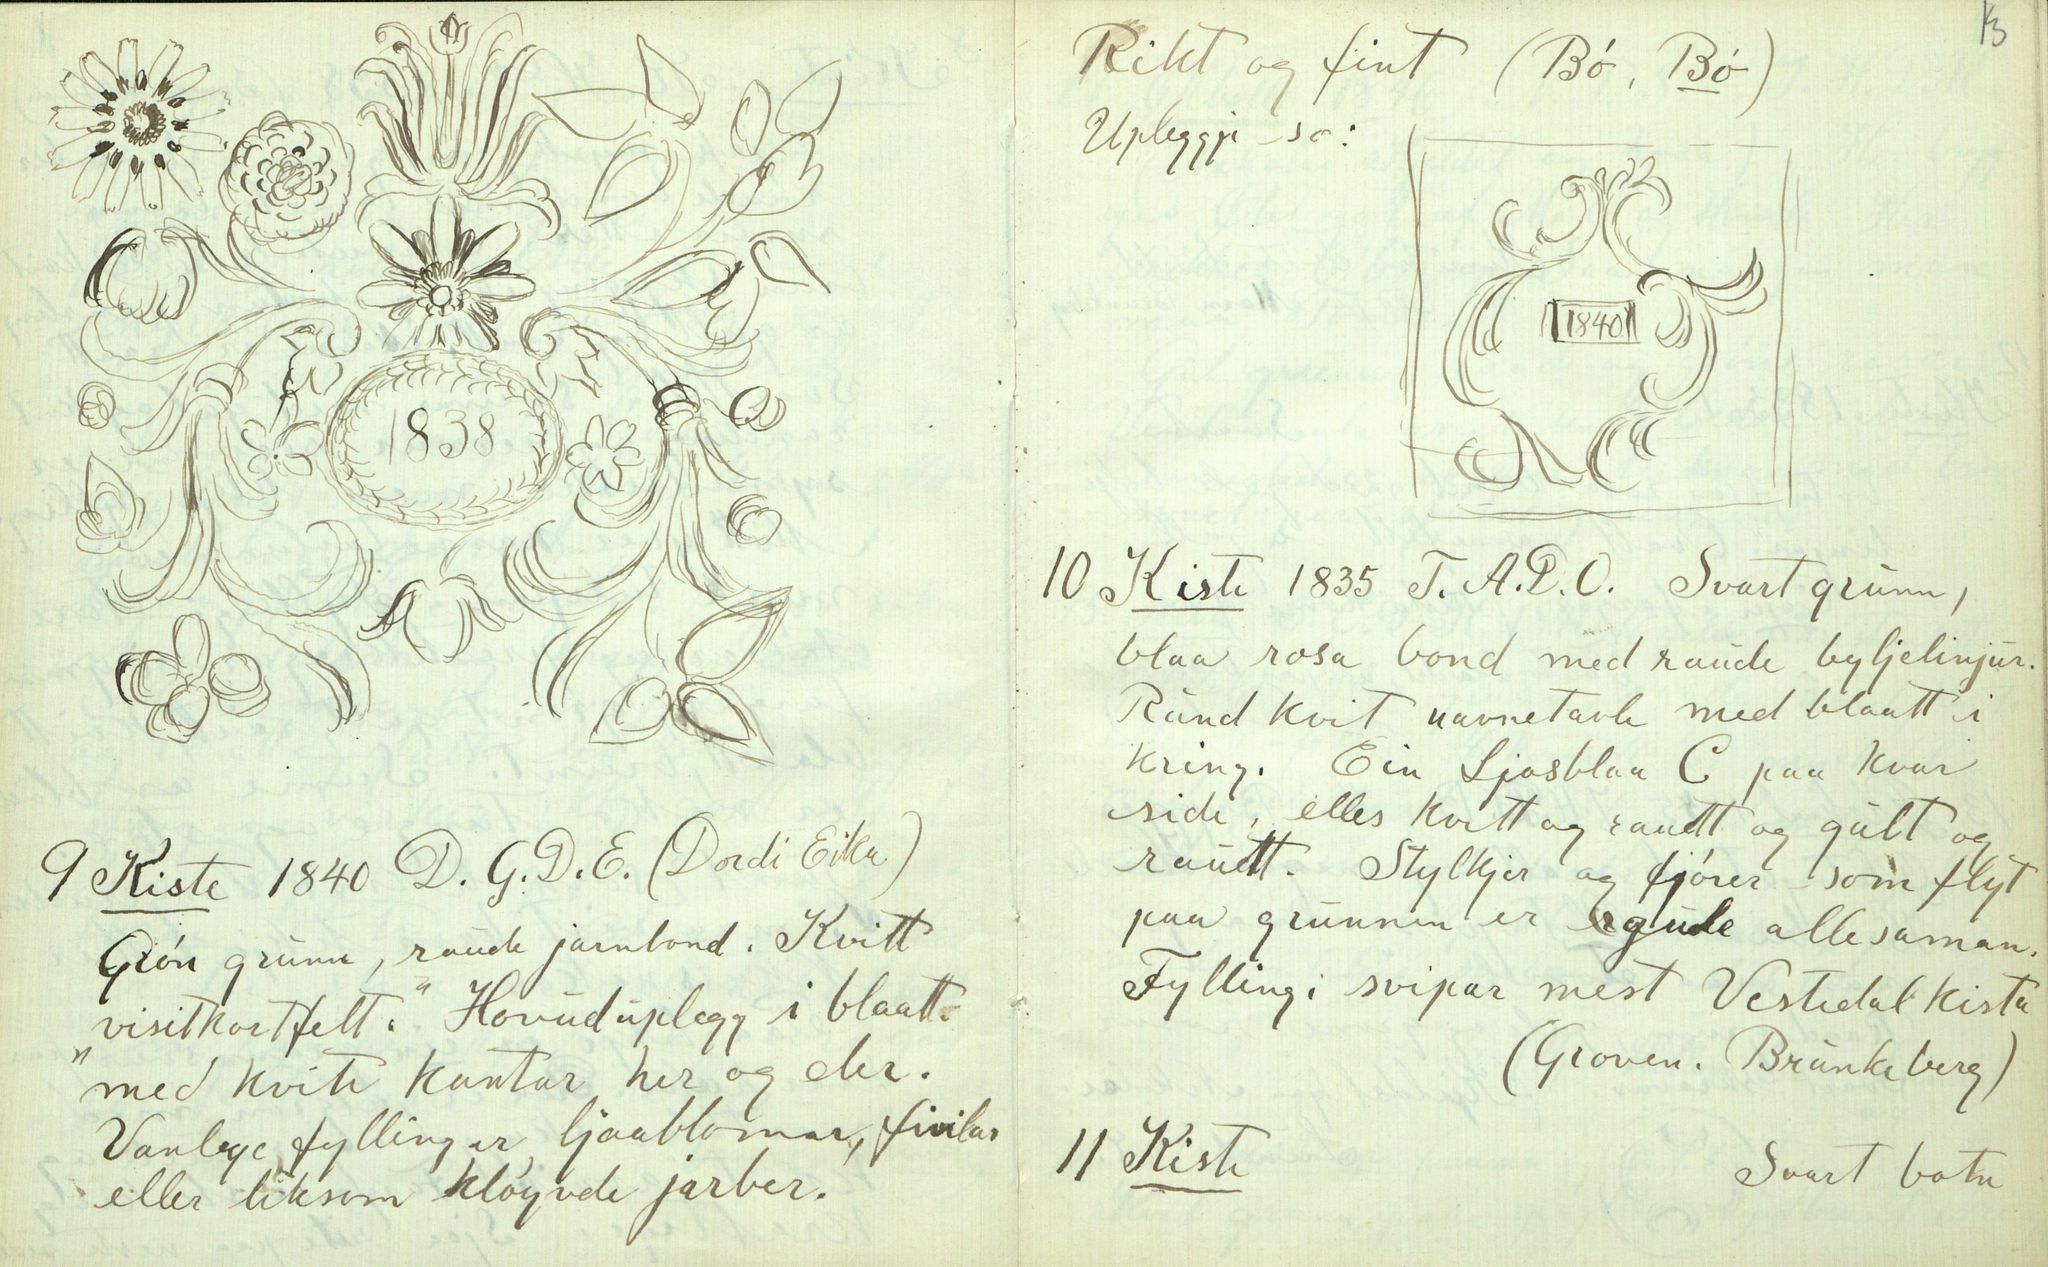 1838
9 Kiste 1840 D. G. D. E. (Dordi Eika)
Grón grunn, raude jarnbond. Kvitt
"visitkortfelt." Hovuduplegg i blaatt
med kvite kantar her og der.
Vanlege fyllingar, ljaablomar, fivilar
eller liksom kløyvde jarber.
13
Rikt og fint (Bó, Bó)
Upleggji so:
1840
10 Kiste 1835 T. A. D. O. Svart grunn,
blaa rosa bond med raude byljelinjur.
Rund kvit navnetavle med blaatt i
kring. Ein Ljosblaa C paa kvar
side, elles kvitt og raudt og gult og
raudt. Stylkjer og fjórer som flyt
paa grunnen er gule allesaman.
Fyllingi svipar mest Vestedal kista
(Groven. Brunkeberg)
11 Kiste Svart botn